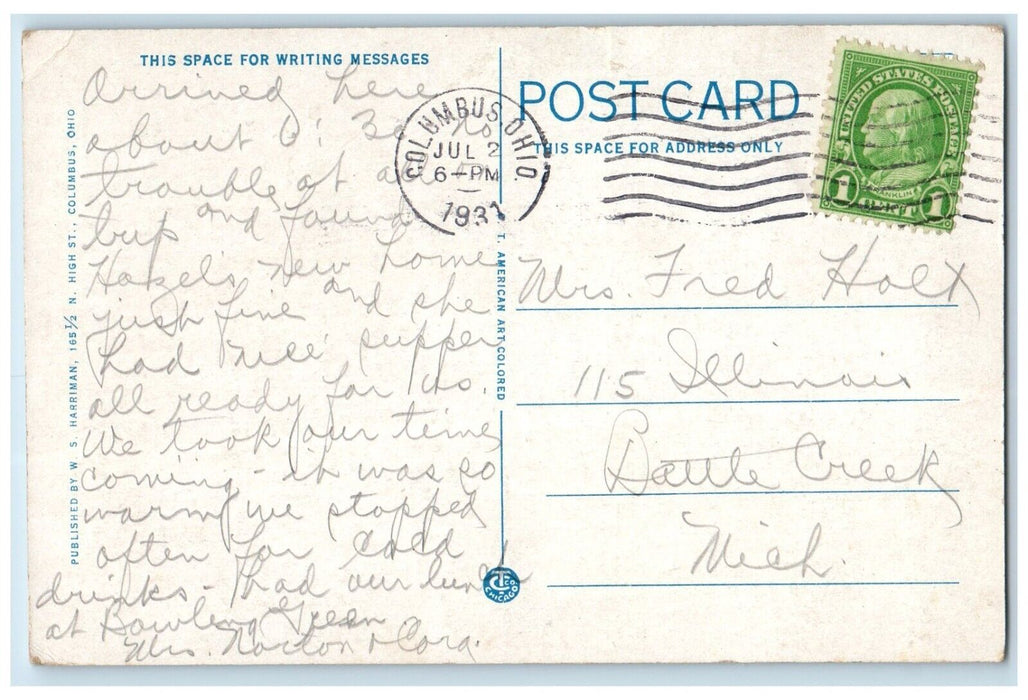 THIS SPACE FOR WRITING MESSAGES
Arrived here
about 6:30 no
trouble at all
trip and found
Hazel's new home
just fine and she
had nice supper
all ready for us.
We took our time
coming - it was so
warm we stopped
often for cold
drinks - had our lunch
at Bowling Green
Mrs. Norton & Cora.
PUBLISHED BY W. S. HARRIMAN, 165½ N. HIGH ST., COLUMBUS, OHIO
T. AMERICAN ART COLORED
POST CARD
THIS SPACE FOR ADDRESS ONLY
COLUMBUS, OHIO
JUL 2
6-PM
193
UNITED STATES POSTAGE
FRANKLIN
1 1
Mrs. Fred Holt
115 Illinois
Battle Creek
Mich.
CT CO
CHICAGO